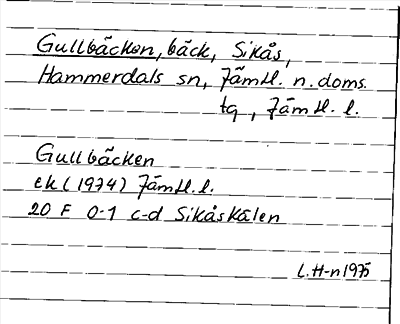 Gullbäcken, bäck, Sikås,
Hammerdals sn, Jämtl. n. doms.
tg, Jämtl. l.
Gullbäcken
ek (1974) Jämtl. l.
20 F 0-1 c-d Sikåskälen
L.H-n 1975